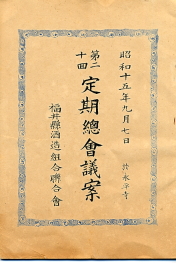 昭和十五年九月七日
於永平寺
第二十回
定期總會議案
福井縣酒造組合聯合會